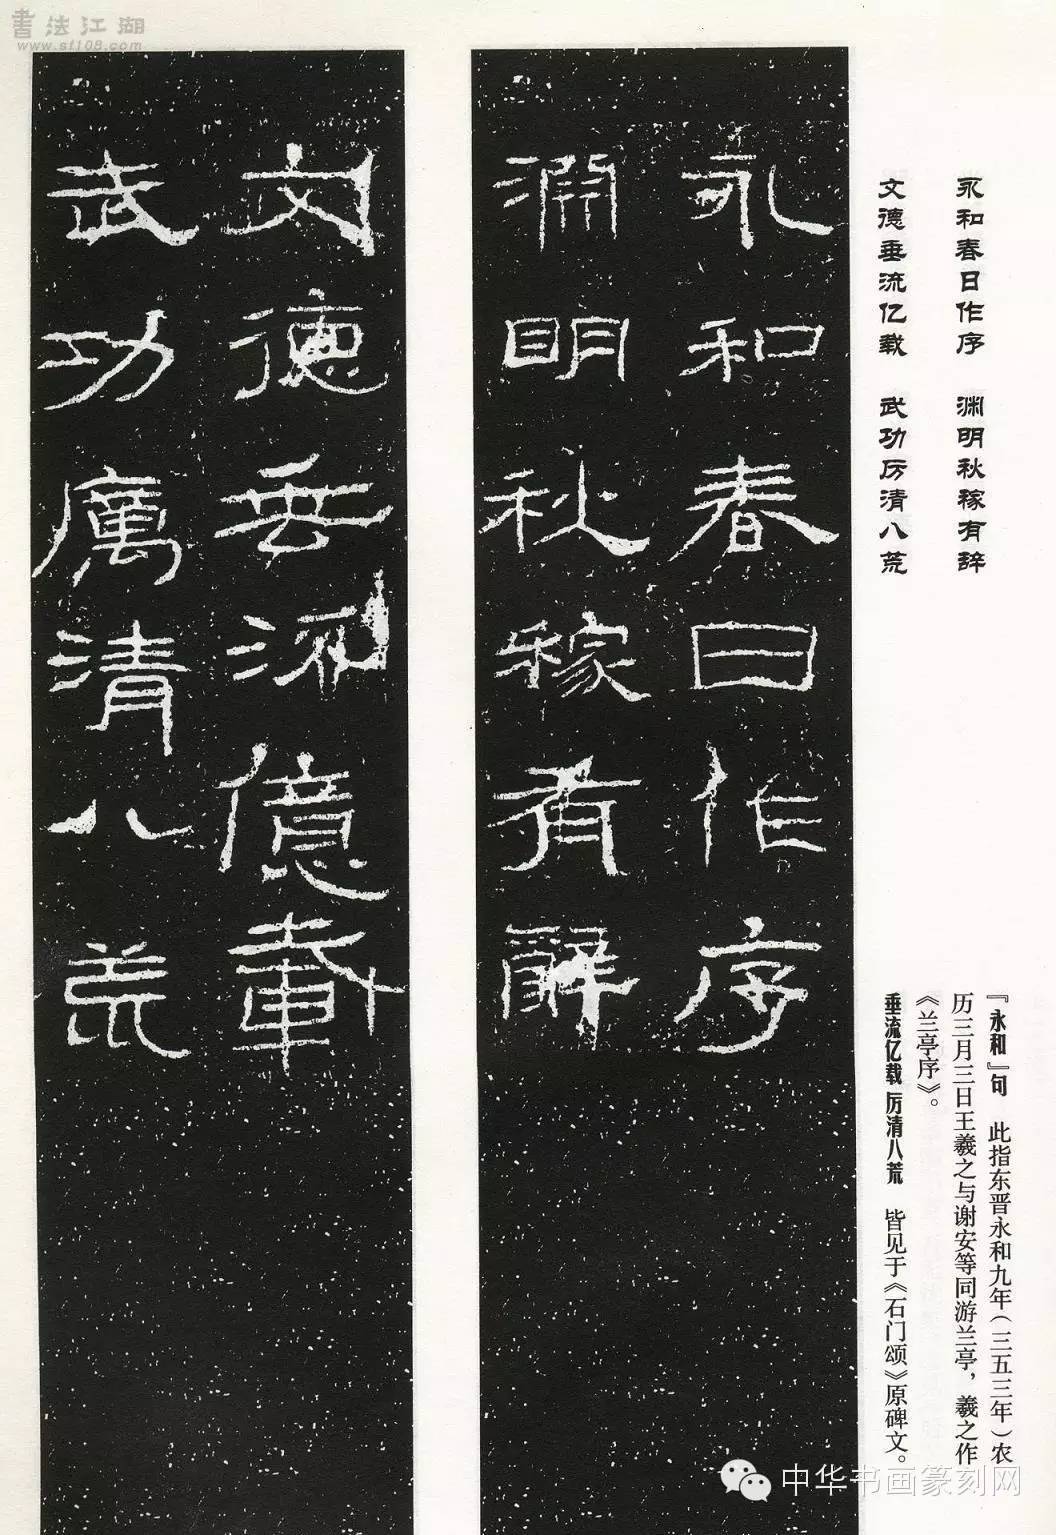 書法江湖
www.sf108.com
永和春日作序　渊明秋稼有辞
文德垂流亿载　武功厉清八荒
永和春日作序
渊明秋稼有辭
文德垂流億載
武功厲清八荒
『永和』句　此指东晋永和九年（三五三年）农
历三月三日王羲之与谢安等同游兰亭，羲之作
《兰亭序》。
垂流亿载 厉清八荒　皆见于《石门颂》原碑文。
中华书画篆刻网